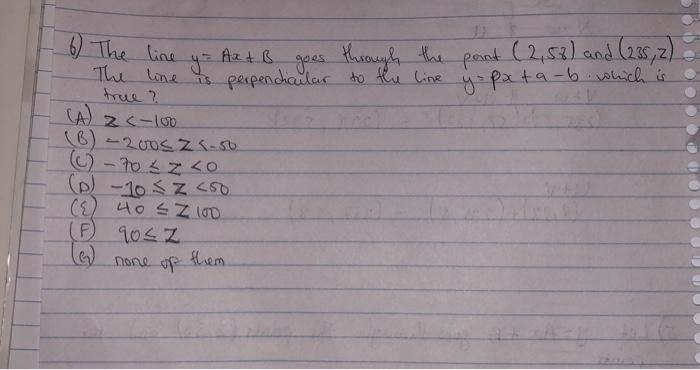 6) The line y = Ax + B goes through the point (2,53) and (235,z)
The line is perpendicular to the line y = px + a - b. which is
true?
(A) z < -100
(B) -200 ≤ z < -50
(C) -70 ≤ z < 0
(D) -10 ≤ z < 50
(E) 40 ≤ z 100
(F) 90 ≤ z
(G) none of them